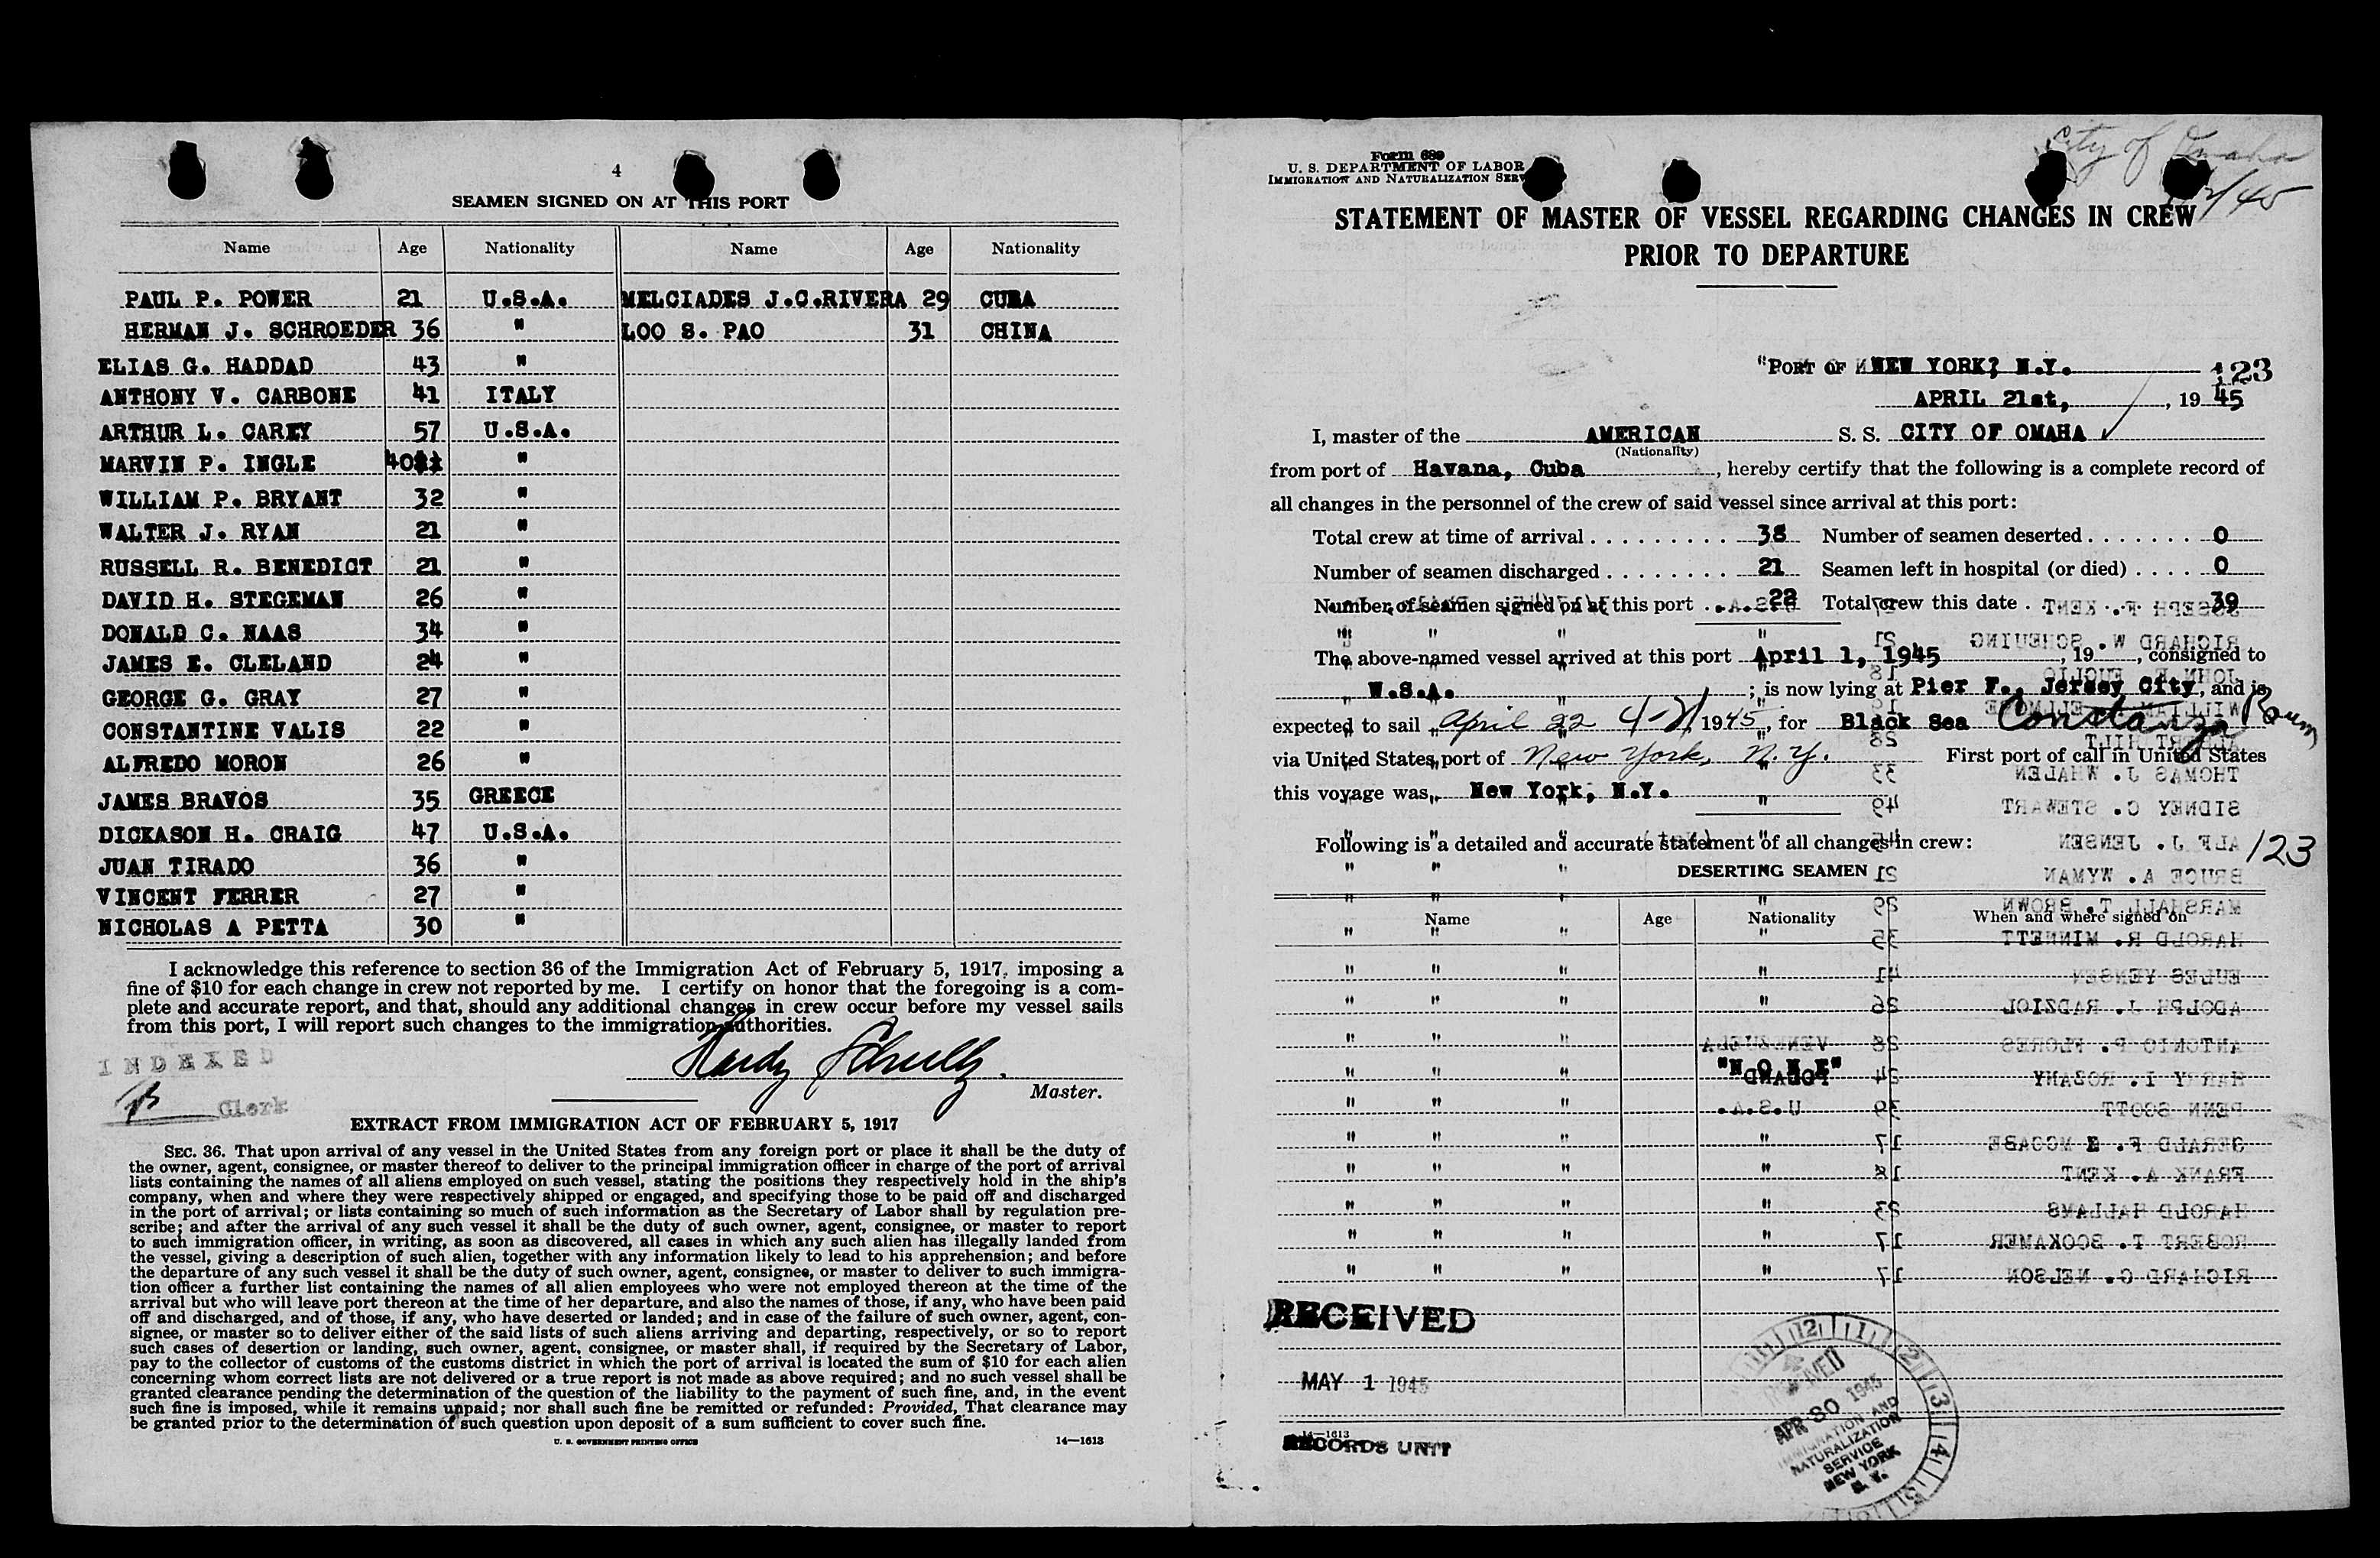 4
SEAMEN SIGNED ON AT THIS PORT
Name Age Nationality Name Age Nationality
PAUL P. POWER 21 U.S.A. MELCIADES J.C.RIVERA 29 CUBA
HERMAN J. SCHROEDER 36 " LOO S. PAO 31 CHINA
ELIAS G. HADDAD 43 "
ANTHONY V. CARBONE 41 ITALY
ARTHUR L. CAREY 57 U.S.A.
MARVIN P. INGLE 40 "
WILLIAM P. BRYANT 32 "
WALTER J. RYAN 21 "
RUSSELL R. BENEDICT 21 "
DAVID H. STEGEMAN 26 "
DONALD C. NAAS 34 "
JAMES E. CLELAND 24 "
GEORGE G. GRAY 27 "
CONSTANTINE VALIS 22 "
ALFREDO MORON 26 "
JAMES BRAVOS 35 GREECE
DICKASON H. CRAIG 47 U.S.A.
JUAN TIRADO 36 "
VINCENT FERRER 27 "
NICHOLAS A PETTA 30 "
I acknowledge this reference to section 36 of the Immigration Act of February 5, 1917, imposing a
fine of $10 for each change in crew not reported by me. I certify on honor that the foregoing is a com-
plete and accurate report, and that, should any additional changes in crew occur before my vessel sails
from this port, I will report such changes to the immigration authorities.
INDEXED
Clerk
Master.
EXTRACT FROM IMMIGRATION ACT OF FEBRUARY 5, 1917
SEC. 36. That upon arrival of any vessel in the United States from any foreign port or place it shall be the duty of
the owner, agent, consignee, or master thereof to deliver to the principal immigration officer in charge of the port of arrival
lists containing the names of all aliens employed on such vessel, stating the positions they respectively hold in the ship's
company, when and where they were respectively shipped or engaged, and specifying those to be paid off and discharged
in the port of arrival; or lists containing so much of such information as the Secretary of Labor shall by regulation pre-
scribe; and after the arrival of any such vessel it shall be the duty of such owner, agent, consignee, or master to report
to such immigration officer, in writing, as soon as discovered, all cases in which any such alien has illegally landed from
the vessel, giving a description of such alien, together with any information likely to lead to his apprehension; and before
the departure of any such vessel it shall be the duty of such owner, agent, consignee, or master to deliver to such immigra-
tion officer a further list containing the names of all alien employees who were not employed thereon at the time of the
arrival but who will leave port thereon at the time of her departure, and also the names of those, if any, who have been paid
off and discharged, and of those, if any, who have deserted or landed; and in case of the failure of such owner, agent, con-
signee, or master so to deliver either of the said lists of such aliens arriving and departing, respectively, or so to report
such cases of desertion or landing, such owner, agent, consignee, or master shall, if required by the Secretary of Labor,
pay to the collector of customs of the customs district in which the port of arrival is located the sum of $10 for each alien
concerning whom correct lists are not delivered or a true report is not made as above required; and no such vessel shall be
granted clearance pending the determination of the question of the liability to the payment of such fine, and, in the event
such fine is imposed, while it remains unpaid; nor shall such fine be remitted or refunded: Provided, That clearance may
be granted prior to the determination of such question upon deposit of a sum sufficient to cover such fine.
U. S. GOVERNMENT PRINTING OFFICE 14—1613
Form 689
U. S. DEPARTMENT OF LABOR
IMMIGRATION AND NATURALIZATION SERV
City of Omaha
STATEMENT OF MASTER OF VESSEL REGARDING CHANGES IN CREW
PRIOR TO DEPARTURE
PORT OF NEW YORK, N.Y. 123
APRIL 21st, , 19 45
I, master of the AMERICAN S. S. CITY OF OMAHA
(Nationality)
from port of Havana, Cuba , hereby certify that the following is a complete record of
all changes in the personnel of the crew of said vessel since arrival at this port:
Total crew at time of arrival 38 Number of seamen deserted 0
Number of seamen discharged 21 Seamen left in hospital (or died) 0
Number of seamen signed on at this port 22 Total crew this date 39
The above-named vessel arrived at this port April 1, 1945 , 19 , consigned to
W.S.A. ; is now lying at Pier F., Jersey City, and is
expected to sail April 22 1945, for Black Sea Constanza Roum
via United States port of New York, N.Y. First port of call in United States
this voyage was New York, N.Y.
Following is a detailed and accurate statement of all changes in crew:
123
DESERTING SEAMEN
Name Age Nationality When and where signed on
"N O N E"
RECEIVED
MAY 1 1945
14—1613
RECORDS UNIT
APR 30 1945
IMMIGRATION AND
NATURALIZATION
SERVICE
NEW YORK
N. Y.